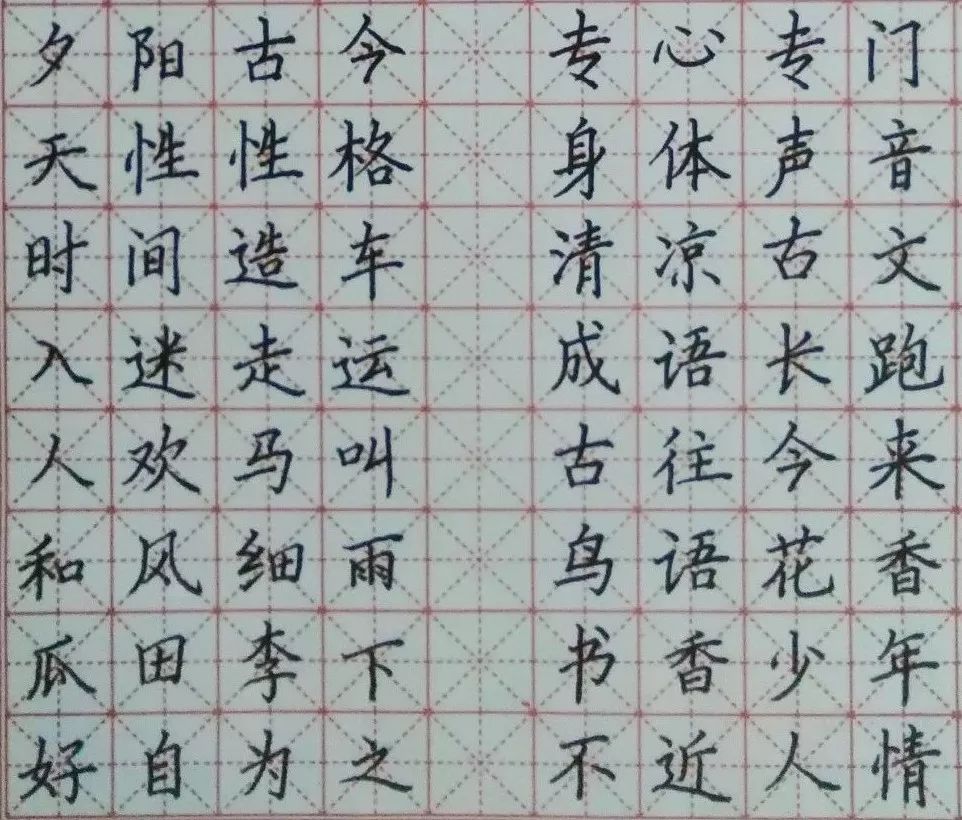 夕阳古今 专心专门
天性性格 身体声音
时间造车 清凉古文
入迷走运 成语长跑
人欢马叫 古往今来
和风细雨 鸟语花香
瓜田李下 书香少年
好自为之 不近人情